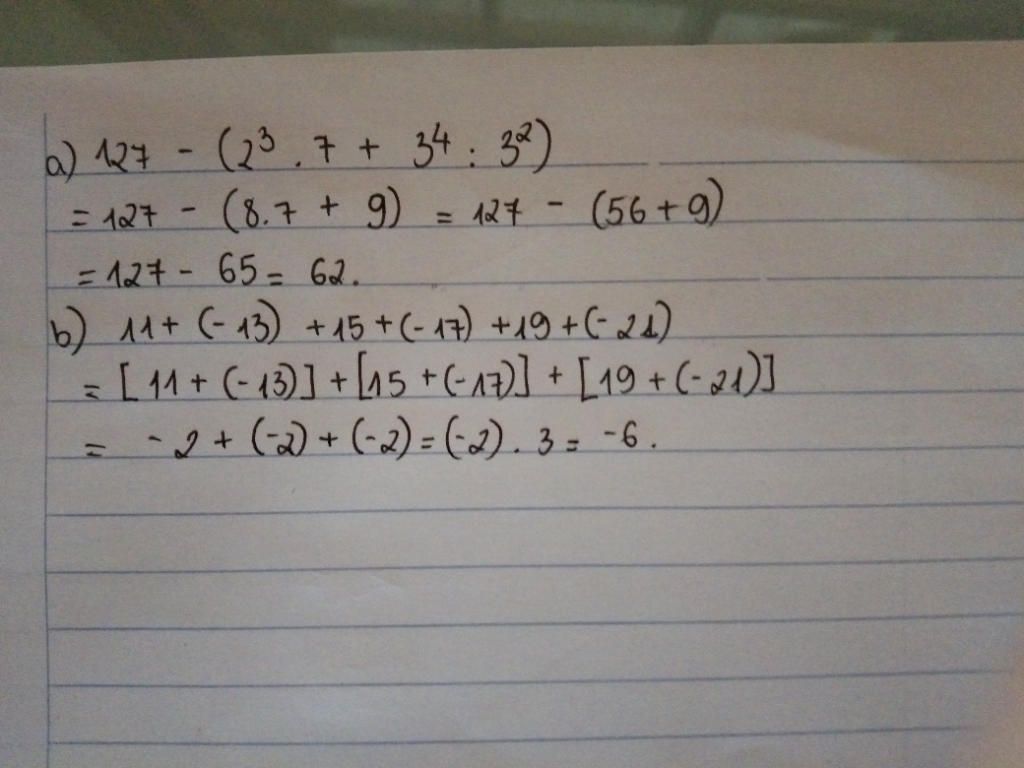 a) 127 - (2³ . 7 + 3⁴ : 3²)
= 127 - (8.7 + 9) = 127 - (56 + 9)
= 127 - 65 = 62.
b) 11 + (-13) + 15 + (-17) + 19 + (-21)
= [11 + (-13)] + [15 + (-17)] + [19 + (-21)]
= -2 + (-2) + (-2) = (-2) . 3 = -6.